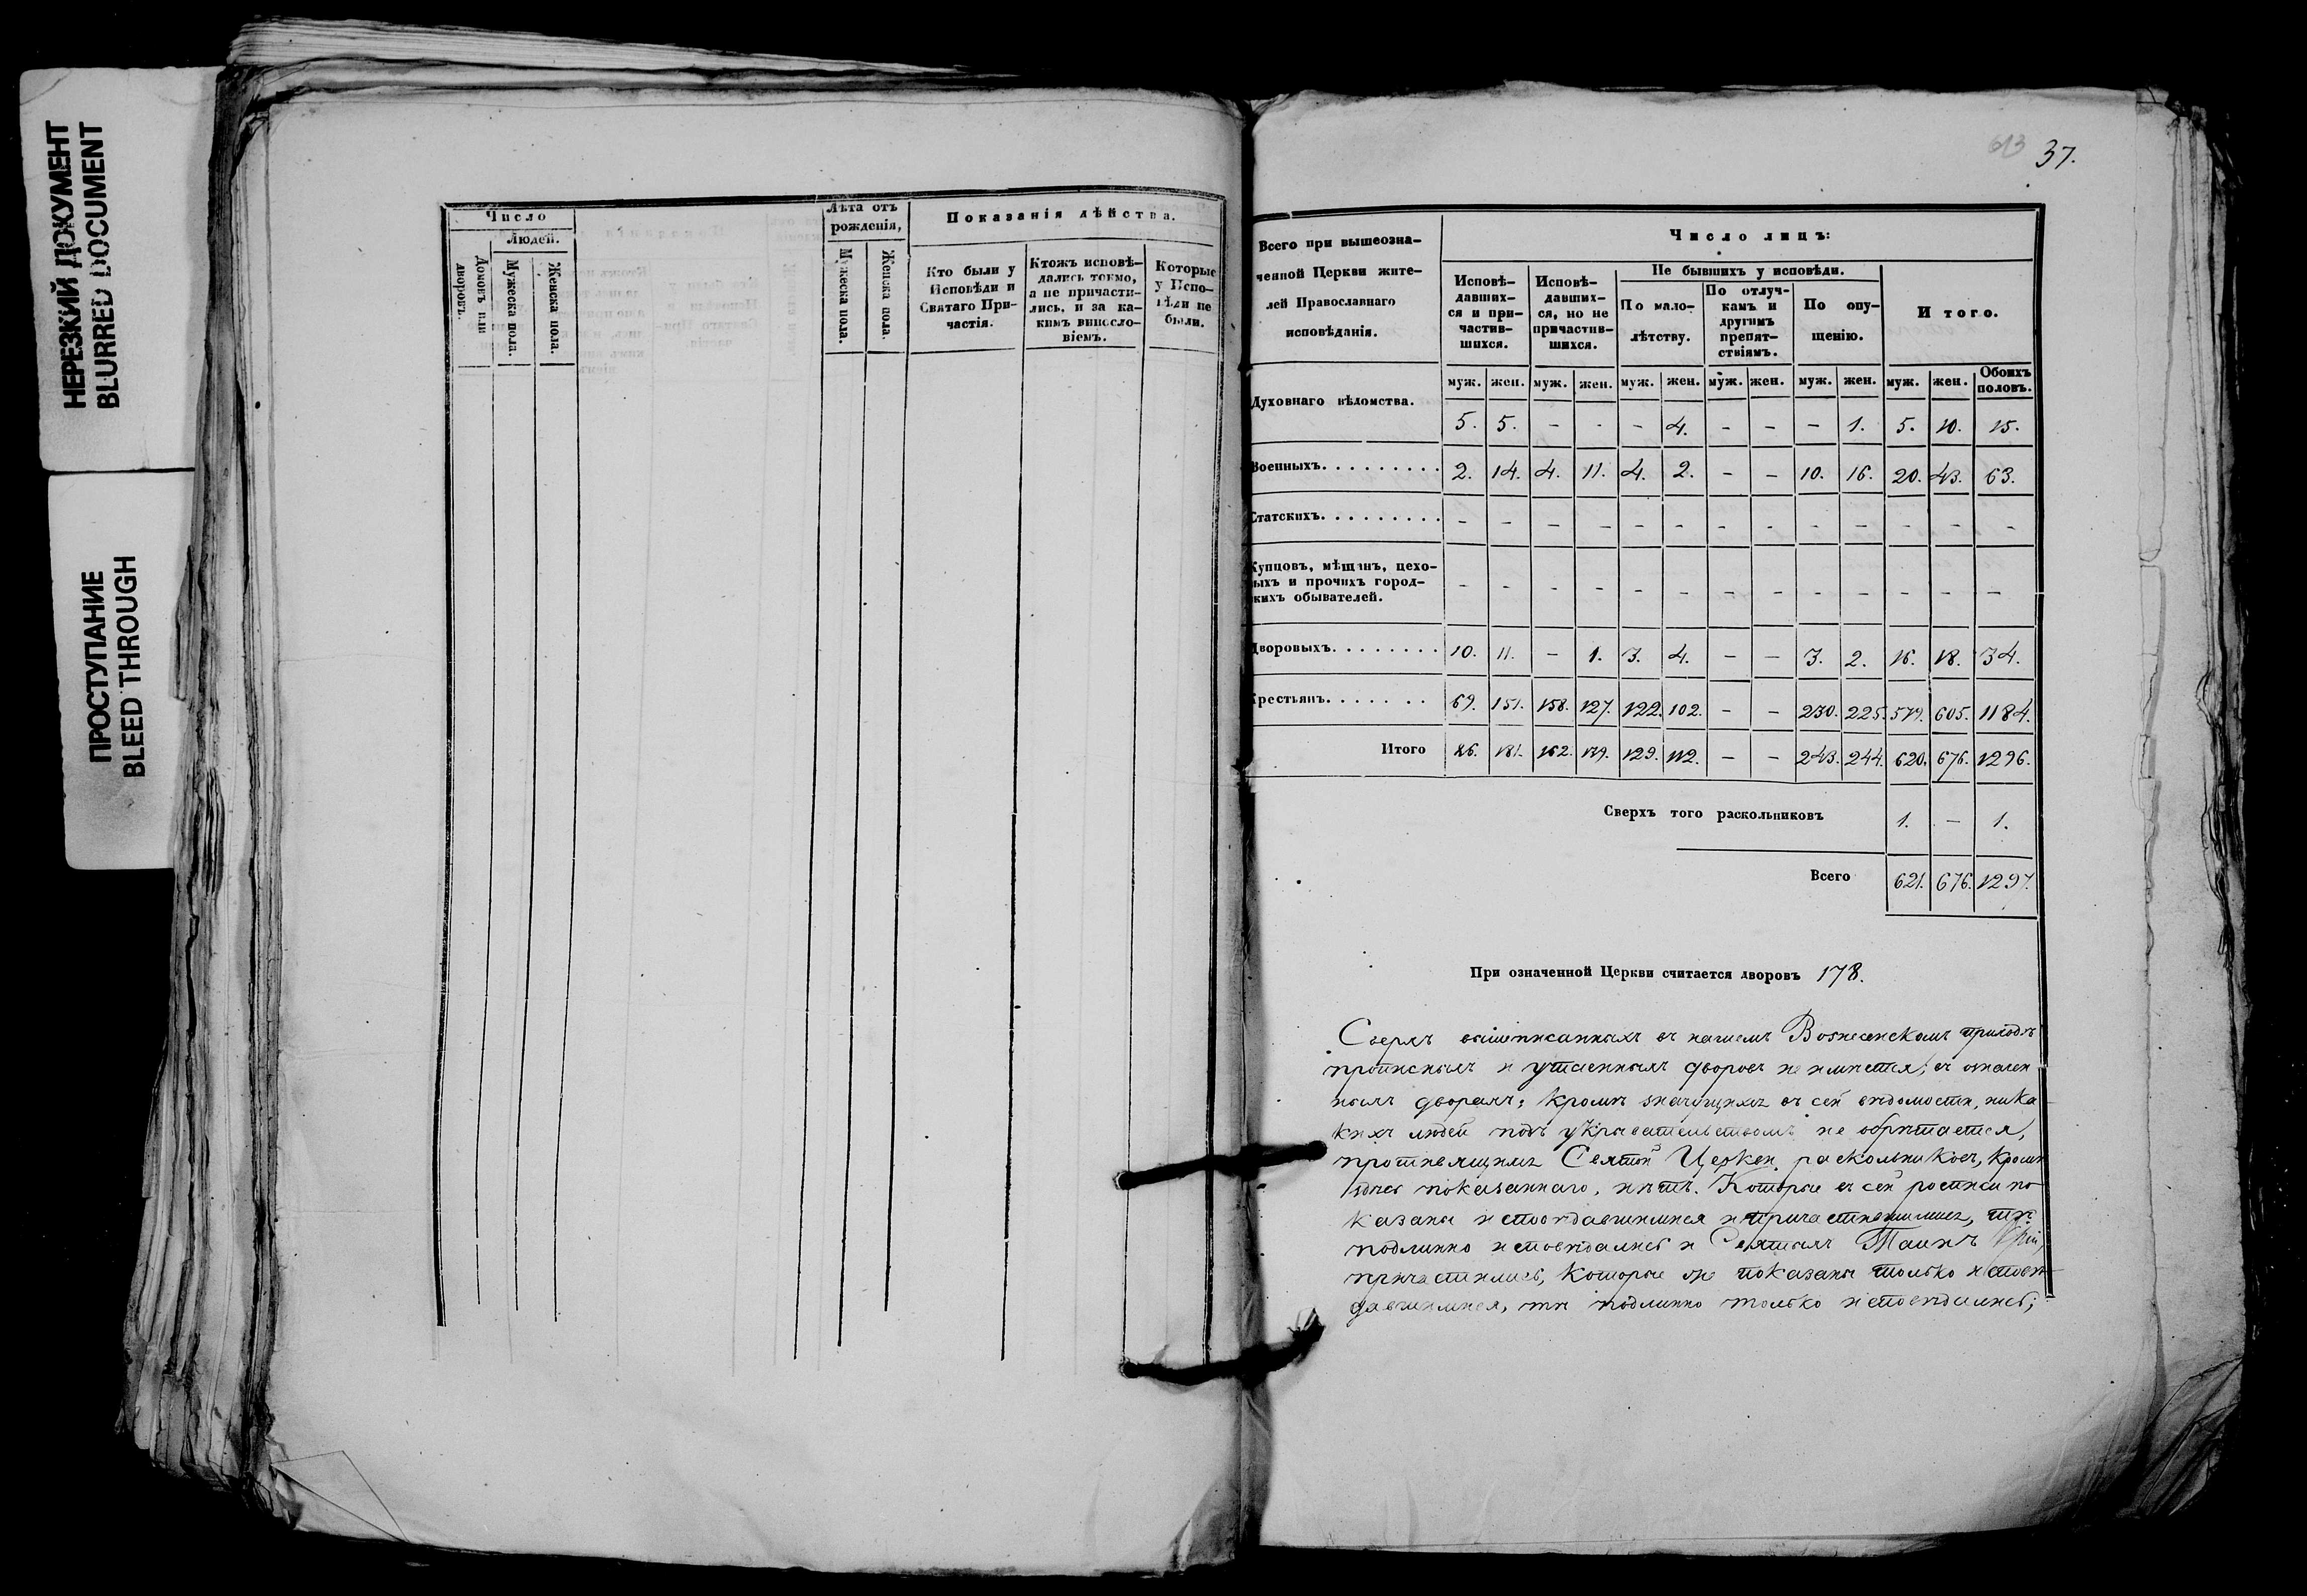 НЕРЕЗКИЙ ДОКУМЕНТ
BLURRED DOCUMENT
ПРОСТУПАНИЕ
BLEED THROUGH
Число
Людей.
Домовъ или дворовъ.
Мужеска пола.
Женска пола.
Лѣта отъ рожденія,
Мужеска пола.
Женска пола.
Показанія дѣйства.
Кто были у Исповѣди и Святаго При-
частія.
Ктожъ исповѣ-
дались токмо,
а не причасти-
лись, и за ка-
кимъ виносло-
віемъ.
Которые
у Испо-
вѣди не
были.
613 37.
Всего при вышеозна-
ченной Церкви жите-
лей Православнаго
исповѣданія.
Число лицъ:
Исповѣ-
давших-
ся и при-
частив-
шихся.
Исповѣ-
давших-
ся, но не
причастив-
шихся.
Не бывшихъ у исповѣди.
По мало-
лѣтству.
По отлуч-
камъ и
другимъ
препят-
ствіямъ.
По опу-
щенію.
Итого.
муж. жен. муж. жен. муж. жен. муж. жен. муж. жен. муж. жен. Обоихъ половъ.
Духовнаго вѣдомства. 5. 5. - - - 4. - - - 1. 5. 10. 15.
Военныхъ......... 2. 14. 4. 11. 4. 2. - - 10. 16. 20. 43. 63.
Статскихъ......... - - - - - - - - - - - - -
Купцовъ, мѣщанъ, цехо-
ыхъ и прочихъ город-
кихъ обывателей. - - - - - - - - - - - - -
Дворовыхъ........ 10. 11. - 1. 3. 4. - - 3. 2. 16. 18. 34.
Крестьянъ....... 69. 151. 158. 127. 122. 102. - - 230. 225. 579. 605. 1184.
Итого 86. 181. 162. 139. 129. 112. - - 243. 244. 620. 676. 1296.
Сверхъ того раскольниковъ 1. - 1.
Всего 621. 676. 1297.
При означенной Церкви считается дворовъ 178.
Сверхъ вышеписанныхъ въ нашемъ Вознесенскомъ приходѣ
прописныхъ и утаенныхъ дворовъ не имѣется; въ означен
ныхъ дворахъ, кромѣ значущихся въ сей вѣдомости, ника
кихъ людей подъ укрывательствомъ не обрѣтается,
противящихъ Святой Церкви раскольниковъ, кромѣ
здѣсь показаннаго, нѣтъ. Которые въ сей росписи по
казаны исповѣдавшимися и причастившимися, тѣ
подлинно исповѣдались и Святыхъ Таинъ
причастились, которые же показаны только исповѣ
давшимися, тѣ подлинно только исповѣдались;